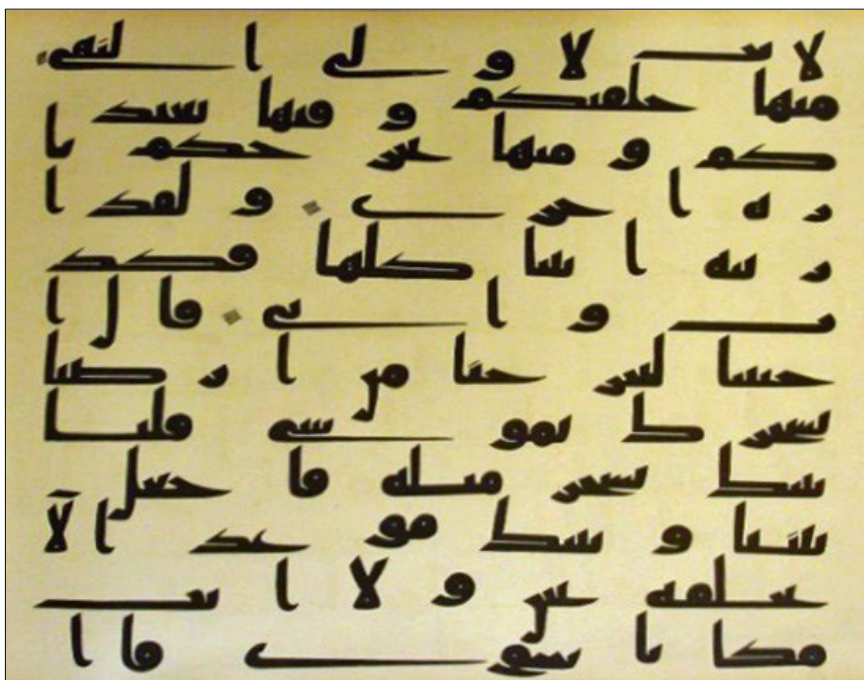 لايت لاولى النهى
منها خلقنكم وفيها نعيد
كم ومنها نخرجكم تا
رة اخرى ولقد ا
رينه ايتنا كلها فكذ
ب وابى قال ا
جئتنا لتخرجنا من ارضنا
بسحرك يموسى فلنا
تينك بسحر مثله فاجعل
بيننا وبينك موعدا لا
نخلفه نحن ولا انت
مكانا سوى قا